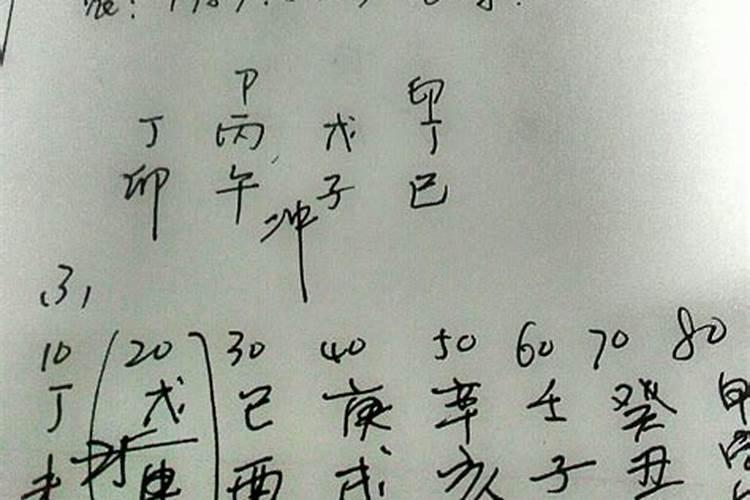 P 印
丁 丙 戊 丁
卯 午 子 巳
冲
(3)
10 20 30 40 50 60 70 80
丁 戊 己 庚 辛 壬 癸 甲
未 申 酉 戌 亥 子 丑 寅